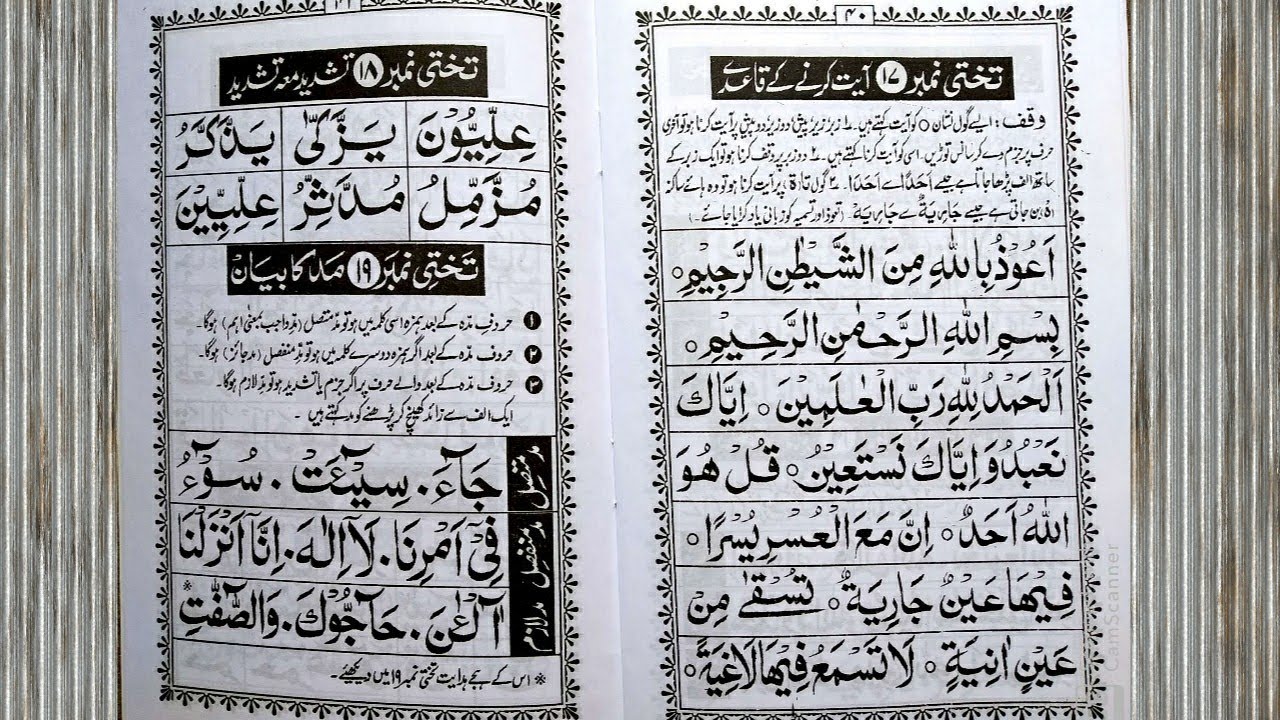 ۴۰
تختی نمبر ۱۷ آیت کرنے کے قاعدے
وقف: ایسے گول نشان ○ کو آیت کہتے ہیں۔ ۱۔ زبر زیر پیش دو زیر دو پیش پر آیت کرنا ہو تو آخری
حرف پر جزم دے کر سانس توڑیں۔ اسی کو آیت کرنا کہتے ہیں۔ ۲۔ دو زبر پر وقف کرنا ہو تو ایک زبر کے
ساتھ الف پڑھا جاتا ہے جیسے اَحَدًا سے اَحَدَا۔ ۳۔ گول تا (ۃ) پر آیت کرنا ہو تو وہ ہائے ساکنہ
(ہْ) بن جاتی ہے جیسے جَارِيَةٌ سے جَارِيَهْ (تعوذ اور تسمیہ کو زبانی یاد کرایا جائے۔)
اَعُوْذُ بِاللّٰهِ مِنَ الشَّيْطٰنِ الرَّجِيْمِ ○
بِسْمِ اللّٰهِ الرَّحْمٰنِ الرَّحِيْمِ ○
اَلْحَمْدُ لِلّٰهِ رَبِّ الْعٰلَمِيْنَ ○ اِيَّاكَ
نَعْبُدُ وَاِيَّاكَ نَسْتَعِيْنُ ○ قُلْ هُوَ
اللّٰهُ اَحَدٌ ○ اِنَّ مَعَ الْعُسْرِ يُسْرًا ○
فِيْهَا عَيْنٌ جَارِيَةٌ ○ تُسْقٰى مِنْ
عَيْنٍ اٰنِيَةٍ ○ لَا تَسْمَعُ فِيْهَا لَاغِيَةً ○
۴۱
تختی نمبر ۱۸ تشدید معہ تشدید
عِلِّيُّوْنَ يَزَّكّٰى يَذَّكَّرُ
مُزَّمِّلُ مُدَّثِّرُ عِلِّيِّيْنَ
تختی نمبر ۱۹ مد کا بیان
۱ حروفِ مدہ کے بعد ہمزہ اسی کلمہ میں ہو تو مدِّ متصل (مدِّ واجب بمعنیٰ اہم) ہوگا۔
۲ حروف مدہ کے بعد اگر ہمزہ دوسرے کلمہ میں ہو تو مدِّ منفصل (مد جائز) ہوگا۔
۳ حروف مدہ کے بعد والے حرف پر اگر جزم یا تشدید ہو تو مدِّ لازم ہوگا۔
ایک الف سے زائد کھینچ کر پڑھنے کو مد کہتے ہیں۔
مد متصل جَآءَ ۔ سِيْٓـَٔتْ ۔ سُوْٓءُ
مد منفصل فِيْٓ اَمْرِنَا ۔ لَآ اِلٰهَ ۔ اِنَّآ اَنْزَلْنَا
مد لازم آٰلْـٰٔنَ ۔ حَآجُّوْكَ ۔ وَالصّٰٓفّٰتِ *
* اس کے ہجے ہدایت تختی نمبر ۱۹ میں دیکھئے۔
CamScanner